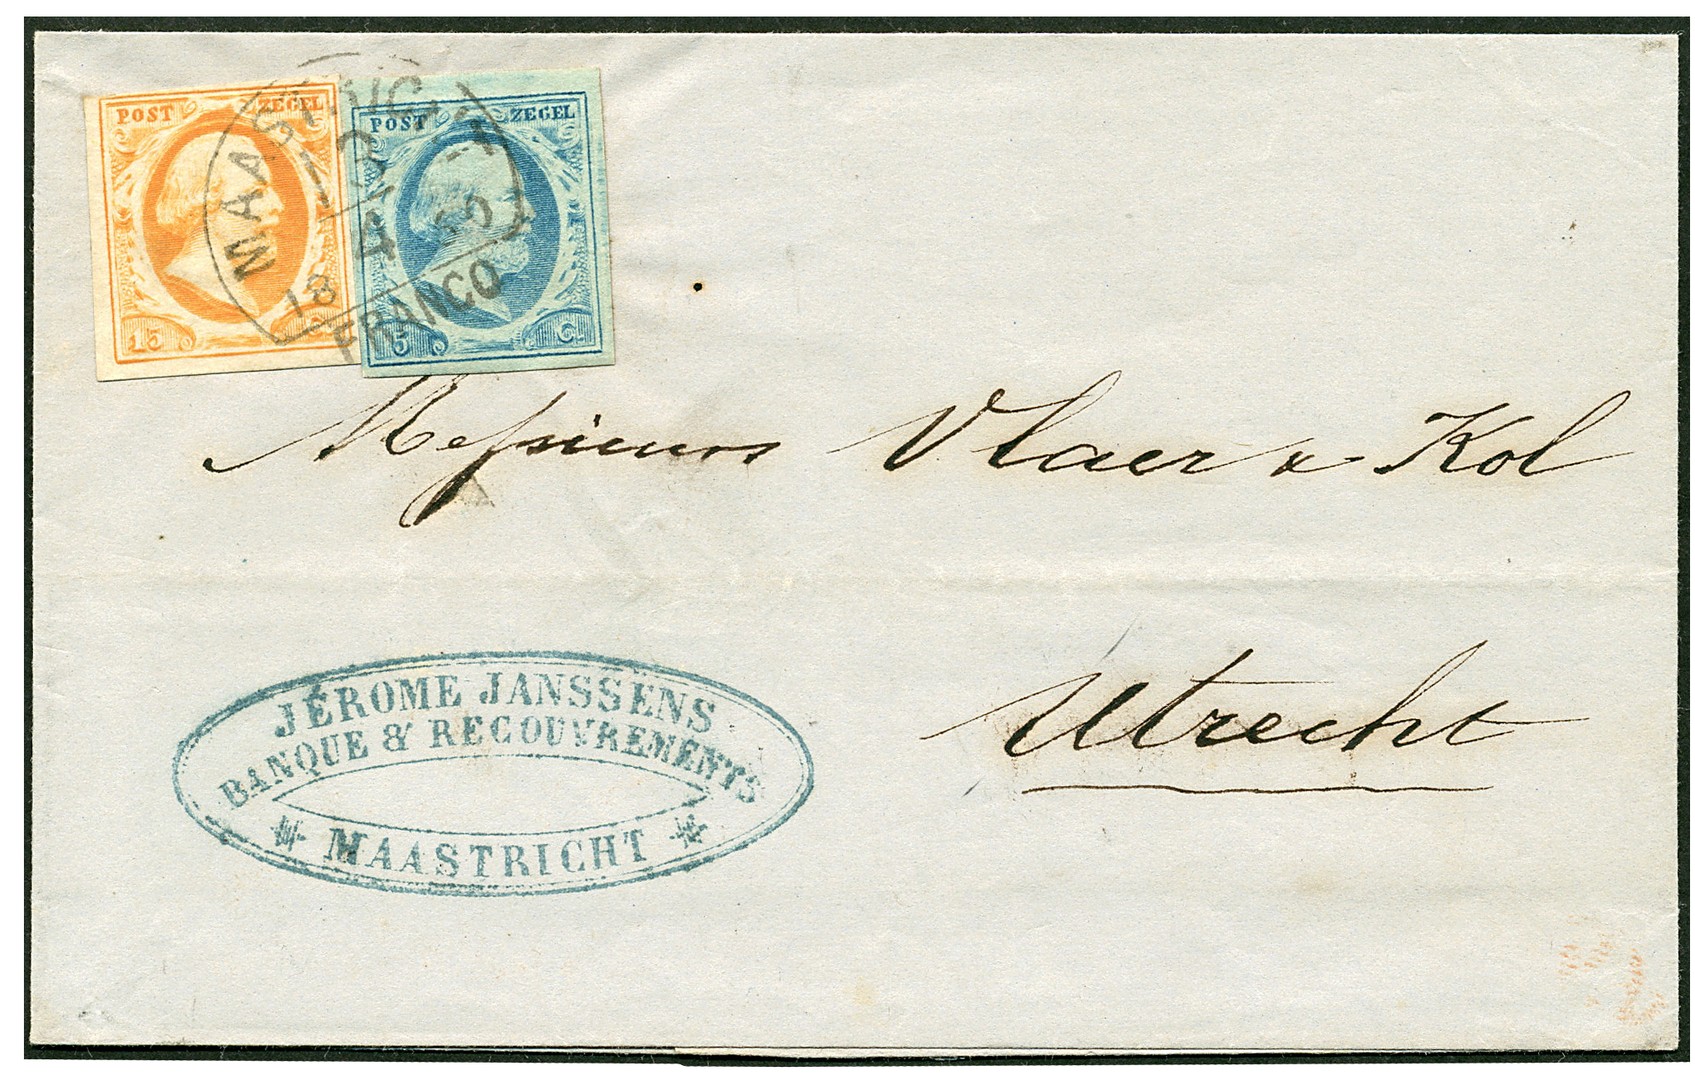 POST ZEGEL
15
POST ZEGEL
5 C.
MAASTRICHT
18 60
FRANCO
Messieurs Vlaer & Kol
Utrecht
JÉROME JANSSENS
BANQUE & RECOUVREMENTS
MAASTRICHT